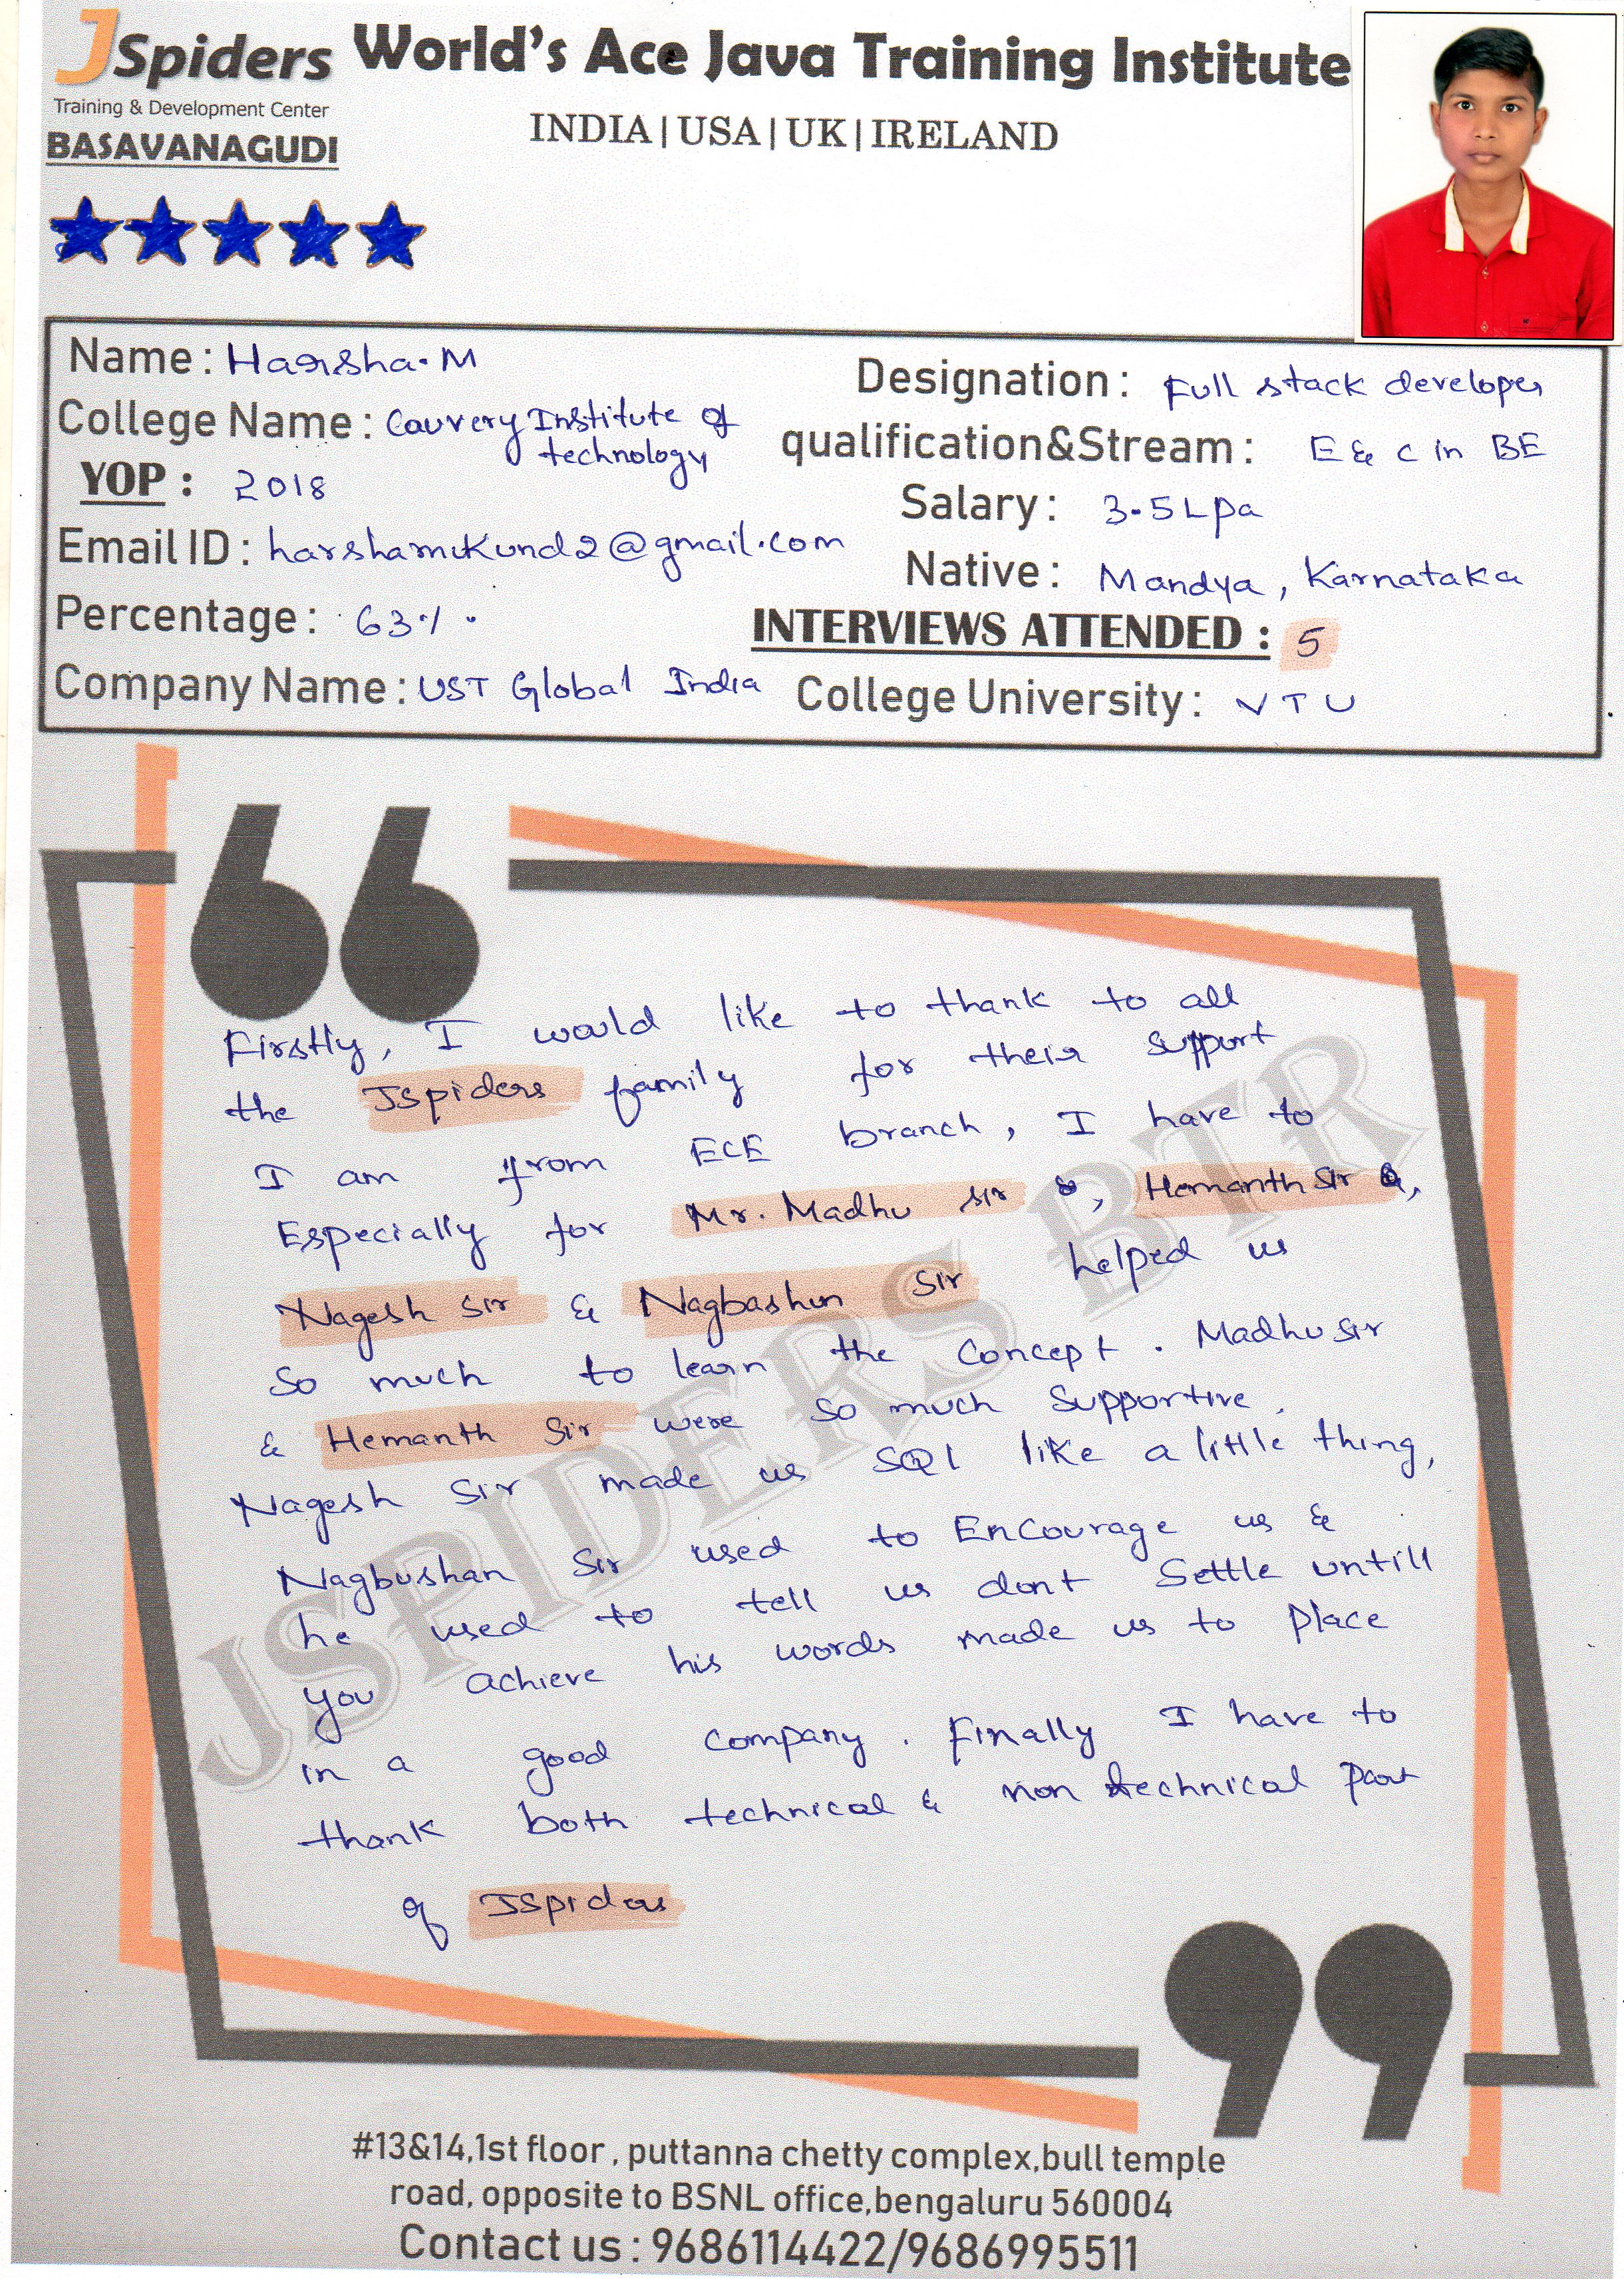 JSpiders World's Ace Java Training Institute
Training & Development Center
BASAVANAGUDI
INDIA | USA | UK | IRELAND
Name : Harsha.M
Designation : Full stack developer
College Name : Cauvery Institute of
technology
qualification&Stream : E & C in BE
YOP : 2018
Salary : 3.5Lpa
Email ID : harshamukund2@gmail.com
Native : Mandya, Karnataka
Percentage : 63%.
INTERVIEWS ATTENDED : 5
Company Name : UST Global India
College University : VTU
Firstly, I would like to thank to all
the JSpiders family for their support
I am from ECE branch, I have to
Especially for Mr. Madhu sir &, Hemanth Sir &,
Nagesh Sir & Nagbashun Sir helped us
So much to learn the Concept. Madhu sir
& Hemanth Sir were so much Supportive.
Nagesh Sir made us SQl like a little thing,
Nagbushan Sir used to EnCourage us &
he used to tell us dont Settle untill
you achieve his words made us to Place
in a good company. Finally I have to
thank both technical & non technical part
of JSpiders
JSPIDERS BTR
#13&14,1st floor , puttanna chetty complex,bull temple
road, opposite to BSNL office,bengaluru 560004
Contact us : 9686114422/9686995511